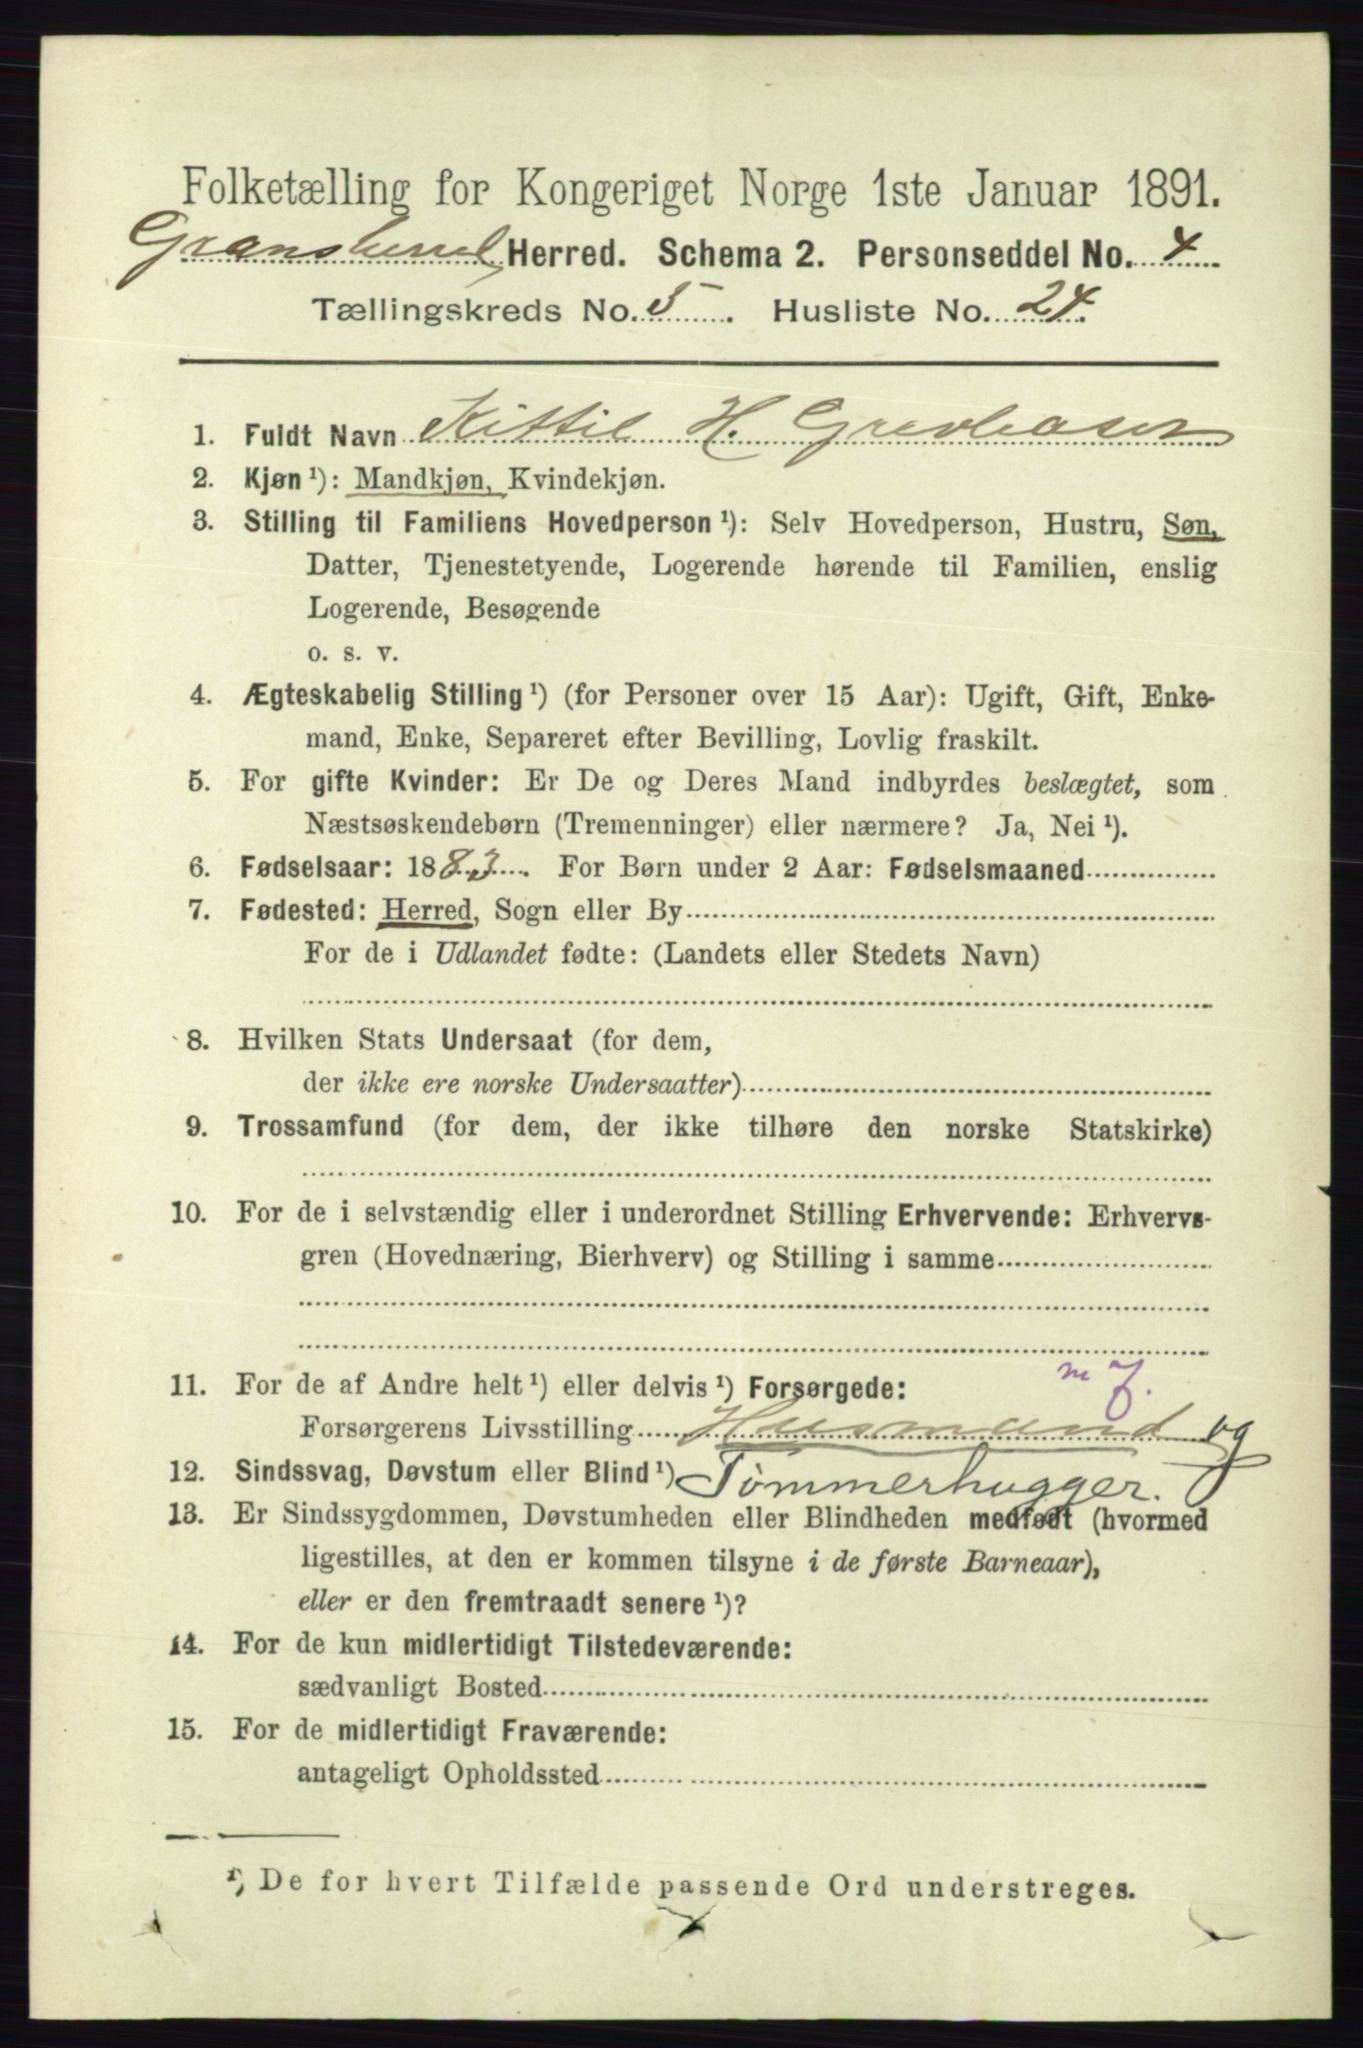 Folketælling for Kongeriget Norge 1ste Januar 1891.
Gransherred Herred. Schema 2. Personseddel No. 4
Tællingskreds No. 5. Husliste No. 24.
1. Fuldt Navn Kittil H.
2. Kjøn ¹): Mandkjøn, Kvindekjøn.
3. Stilling til Familiens Hovedperson ¹): Selv Hovedperson, Hustru, Søn,
Datter, Tjenestetyende, Logerende hørende til Familien, enslig
Logerende, Besøgende
o. s. v.
4. Ægteskabelig Stilling ¹) (for Personer over 15 Aar): Ugift, Gift, Enke-
mand, Enke, Separeret efter Bevilling, Lovlig fraskilt.
5. For gifte Kvinder: Er De og Deres Mand indbyrdes beslægtet, som
Næstsøskendebørn (Tremenninger) eller nærmere? Ja, Nei ¹).
6. Fødselsaar: 1883. For Børn under 2 Aar: Fødselsmaaned
7. Fødested: Herred, Sogn eller By
For de i Udlandet fødte: (Landets eller Stedets Navn)
8. Hvilken Stats Undersaat (for dem,
der ikke ere norske Undersaatter)
9. Trossamfund (for dem, der ikke tilhøre den norske Statskirke)
10. For de i selvstændig eller i underordnet Stilling Erhvervende: Erhvervs-
gren (Hovednæring, Bierhverv) og Stilling i samme
11. For de af Andre helt ¹) eller delvis ¹) Forsørgede: m f.
Forsørgerens Livsstilling Husmand og
12. Sindssvag, Døvstum eller Blind ¹) Tømmerhugger.
13. Er Sindssygdommen, Døvstumheden eller Blindheden medfødt (hvormed
ligestilles, at den er kommen tilsyne i de første Barneaar),
eller er den fremtraadt senere ¹)?
14. For de kun midlertidigt Tilstedeværende:
sædvanligt Bosted
15. For de midlertidigt Fraværende:
antageligt Opholdssted
¹) De for hvert Tilfælde passende Ord understreges.